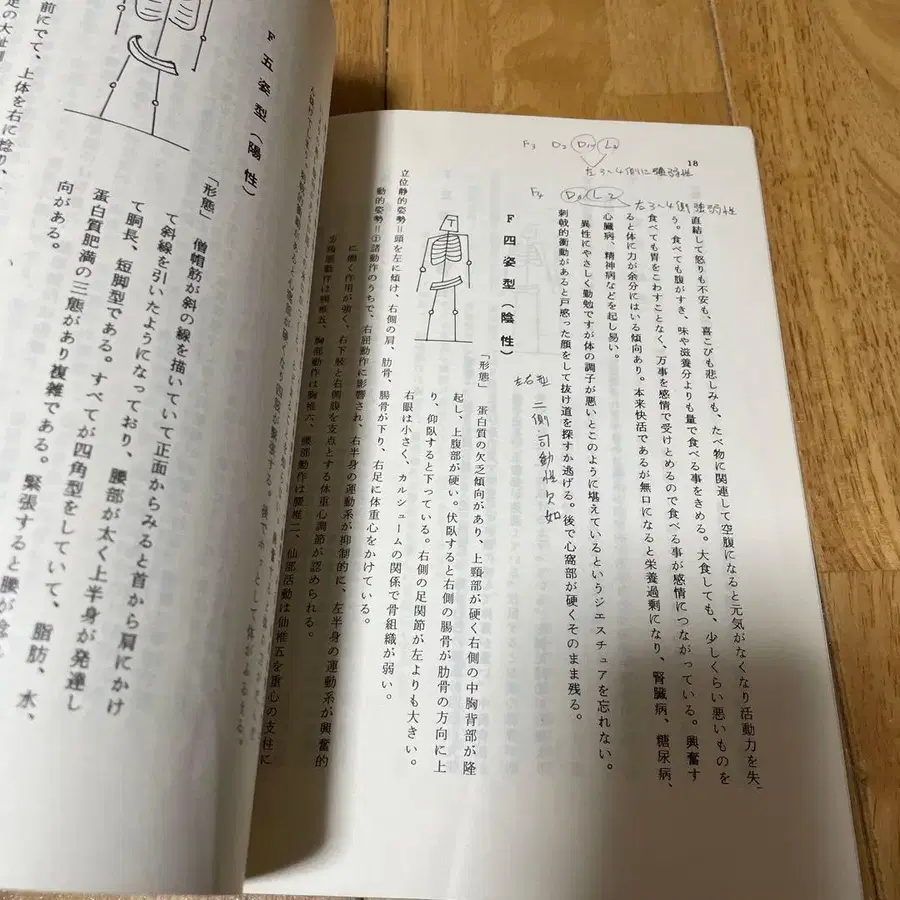 18
F3 D2 D11 L2
左3〜4側に強弱性
F4 D6 L2 左3〜4側 強弱性
直結して怒りも不安も、喜こびも悲しみも、たべ物に関連して空腹になると元気がなくなり活動力を失
う。食べても腹がすき、味や滋養分よりも量で食べる事をきめる。大食しても、少しくらい悪いものを
食べても胃をこわすことなく、万事を感情で受けとめるので食べる事が感情につながっている。興奮す
ると体に力が余分にはいる傾向あり。本来快活であるが無口になると栄養過剰になり、腎臓病、糖尿病、
心臓病、精神病などを起し易い。
異性にやさしく勤勉ですが体の調子が悪いとこのように堪えているというジエスチュアを忘れない。
刺戟的衝動があると戸惑った顔をして抜け道を探すか逃げる。後で心窩部が硬くそのまま残る。
二側可動性欠如
左右型
F四姿型(陰性)
「形態」 蛋白質の欠乏傾向があり、上頸部が硬く右側の中胸背部が隆
起し、上腹部が硬い。伏臥すると右側の腸骨が肋骨の方向に上
り、仰臥すると下っている。右側の足関節が左よりも大きい。
右眼は小さく、カルシュームの関係で骨組織が弱い。
立位静的姿勢=頭を左に傾け、右側の肩、肋骨、腸骨が下り、右足に体重心をかけている。
動的姿勢=①諸動作のうちで、右屈動作に影響され、右半身の運動系が抑制的に、左半身の運動系が興奮的
に働く作用が強く、右下肢と右側腹を支点とする体重心調節が認められる。
動作は頸椎五、胸部動作は胸椎六、腰部動作は腰椎二、仙部活動は仙椎五を重心の支柱に
F五姿型(陽性)
「形態」 僧帽筋が斜の線を描いていて正面からみると首から肩にかけ
て斜線を引いたようになっており、腰部が太く上半身が発達し
て胴長、短脚型である。すべてが四角型をしていて、脂肪、水、
蛋白質肥満の三態があり複雑である。緊張すると腰が
向がある。
前にでて、上体を右に捻り、
足の大趾